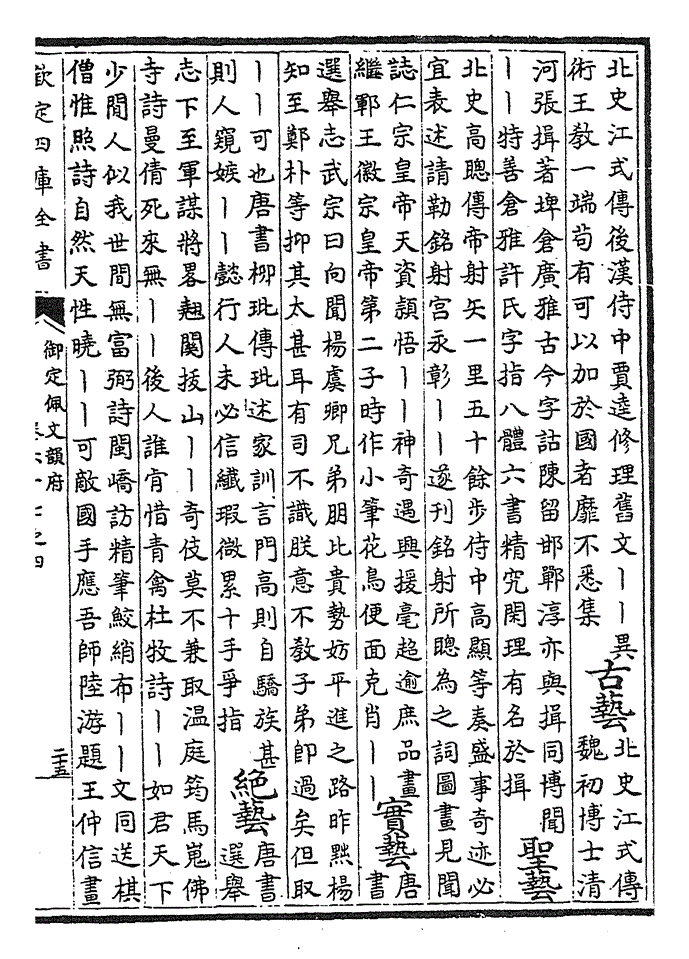 北史江式傳後漢侍中賈逵修理舊文丨丨異
術王教一端苟有可以加於國者靡不悉集
古藝
北史江式傳
魏初博士清
河張揖著埤倉廣雅古今字詁陳留邯鄲淳亦與揖同博聞
丨丨特善倉雅許氏字指八體六書精究閑理有名於揖
聖藝
北史高聰傳帝射矢一里五十餘步侍中高顯等奏盛事奇迹必
宜表述請勒銘射宮永彰丨丨遂刊銘射所聰為之詞圖畫見聞
誌仁宗皇帝天資頴悟丨丨神奇遇興援毫超逾庶品畫
繼鄆王徽宗皇帝第二子時作小筆花鳥便面克肖丨丨
實藝
唐
書
選舉志武宗曰向聞楊虞卿兄弟朋比貴勢妨平進之路昨黜楊
知至鄭朴等抑其太甚耳有司不識朕意不教子弟即過矣但取
丨丨可也唐書柳玭傳玭述家訓言門高則自驕族甚
則人窺嫉丨丨懿行人未必信纖瑕微累十手爭指
絕藝
唐書
選舉
志下至軍謀將畧翹關拔山丨丨奇伎莫不兼取溫庭筠馬嵬佛
寺詩曼倩死來無丨丨後人誰肯惜青禽杜牧詩丨丨如君天下
少閒人似我世間無富弼詩閩嶠訪精筆鮫綃布丨丨文同送棋
僧惟照詩自然天性曉丨丨可敵國手應吾師陸游題王仲信畫
欽定四庫全書
御定佩文韻府
二十五